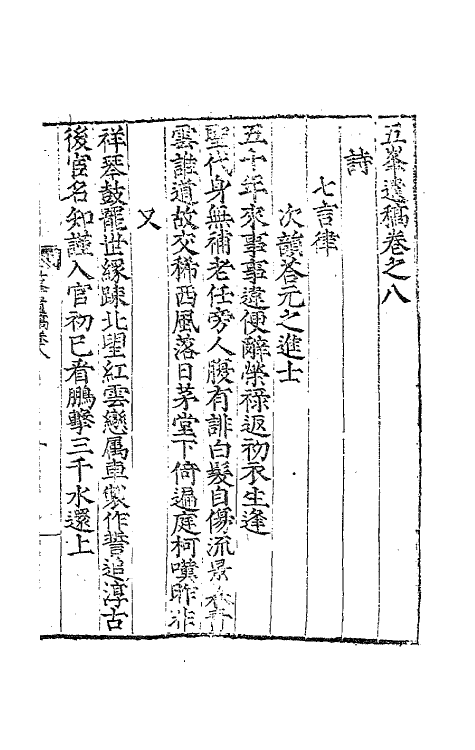 五峯遺稿卷之八
詩
七言律
次韻荅元之進士
五十年來事事違便辭榮祿返初衣生逢
聖代身無補老任旁人腹有誹白髮自傷流景
雲誰道故交稀西風落日茅堂下倚遍庭柯嘆昨非
又
祥琴鼓罷世緣踈北望紅雲戀属車製作誓追淳古
後官名知謹入官初已看鵬擊三千水還上